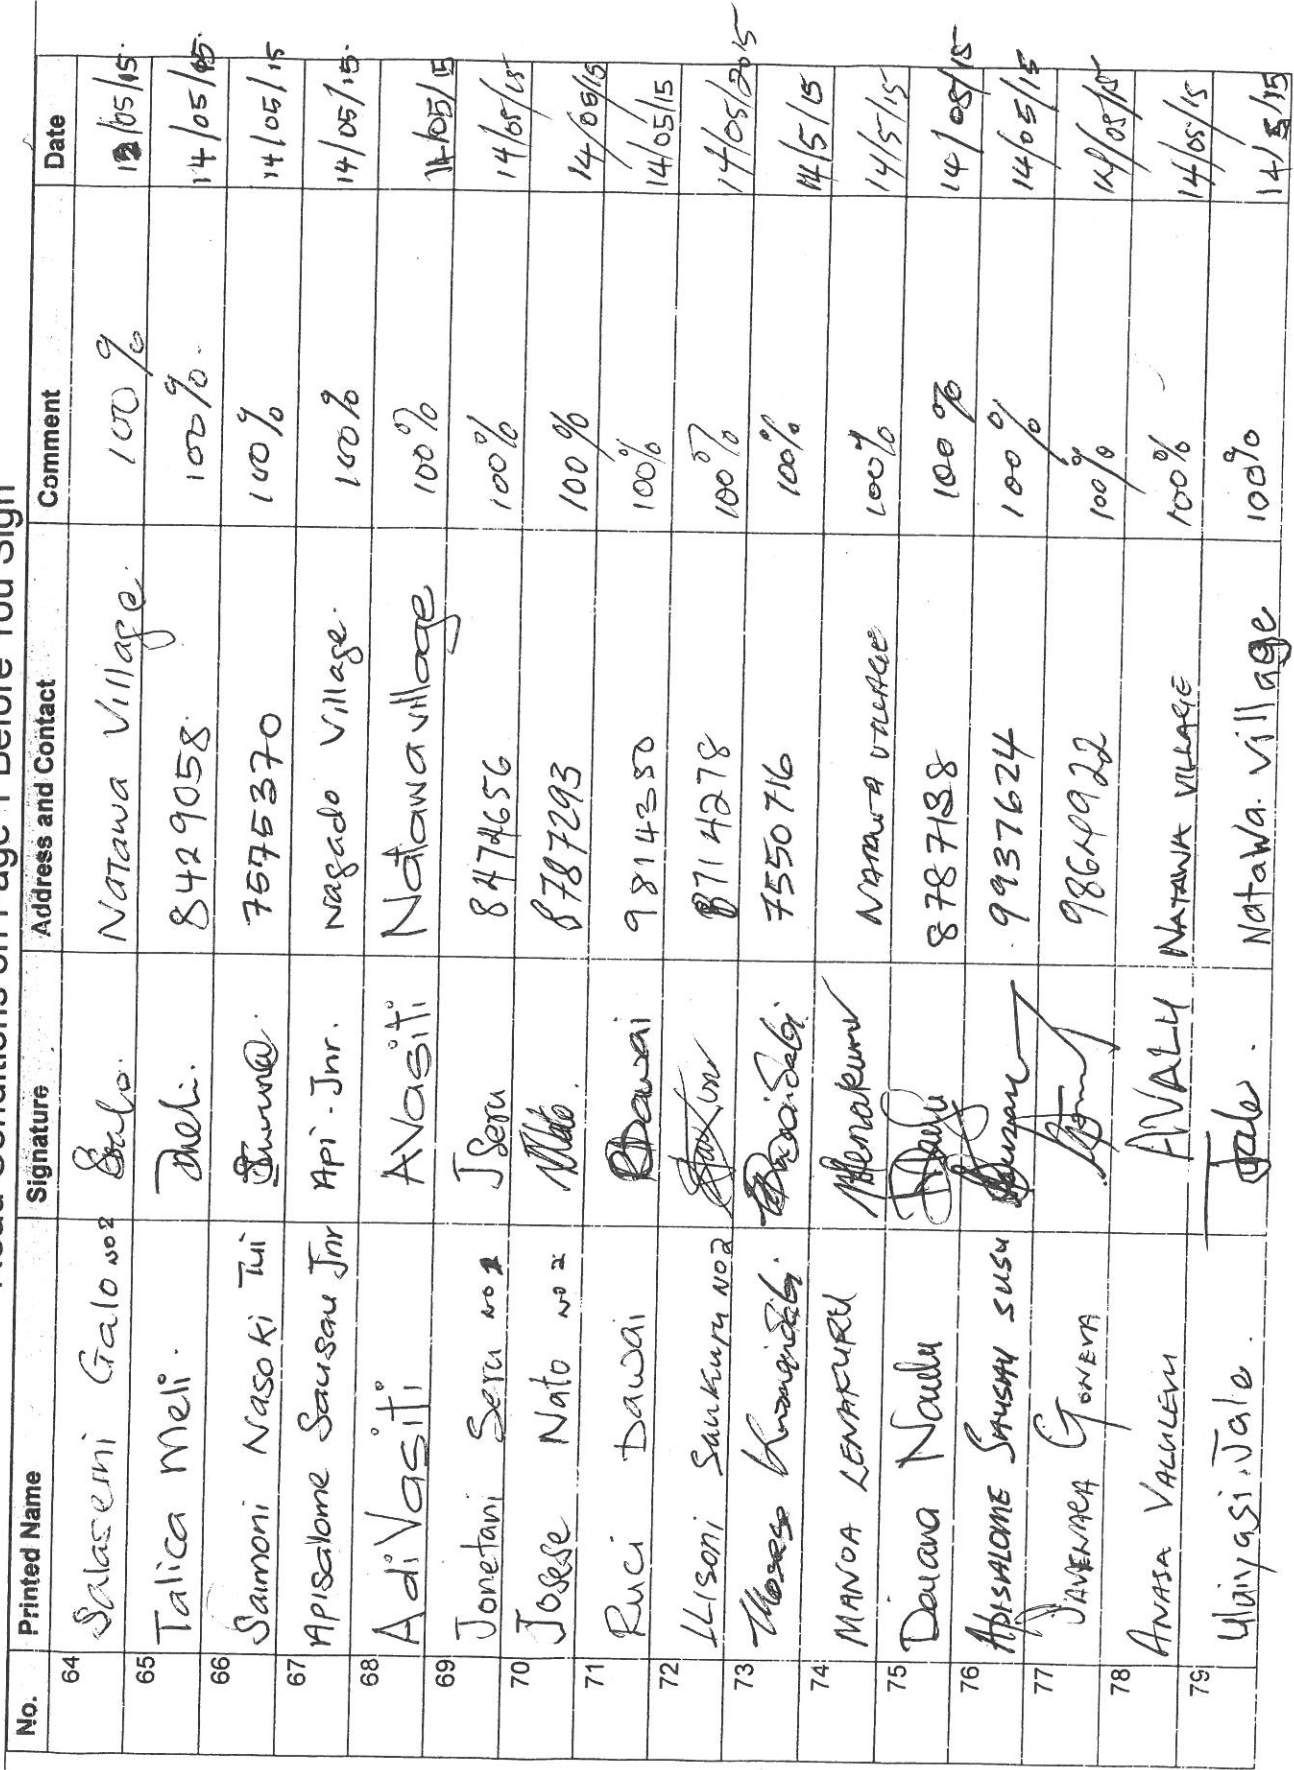 Read Conditions on Page 1 Before You Sign
No. Printed Name Signature Address and Contact Comment Date
64 Salaseini Galo NO2 Galo. Natawa Village. 100% 12/05/15.
65 Talica Meli. Meli. 8429058. 100%. 14/05/15.
66 Saimoni Nasoki Tui 7575370 100% 14/05/15
67 Apisalome Sausau Jnr Api-Jnr. Nagado Village. 100% 14/05/15.
68 Adi Vasiti AVasiti Natawa village 100% 14/05/15
69 Jonetani Seru NO 1 JSeru 8474656 100% 14/05/15
70 Josese Nato NO 2 Nato 8787293 100% 14/05/15
71 Ruci Dawai RDawai 9814350 100% 14/05/15
72 ILISoni Saukuru NO2 8714278 100% 14/05/2015
73 Mosese 7550716 100% 14/5/15
74 MANOA LENAKURU MLenakuru NATAWA VILLAGE 100% 14/5/15
75 Daiana Naulu 8787138 100% 14/05/15
76 APISALOME SAUSAU SUSU 9937624 100% 14/05/15
77 JAVENACA GONEVA 9864922 100% 14/05/15
78 ANASA VALULEVU AVALU NATAWA VILLAGE 100% 14/05/15
79 Ulaiyasi.Tale. Tale. Natawa. village 100% 14/5/15